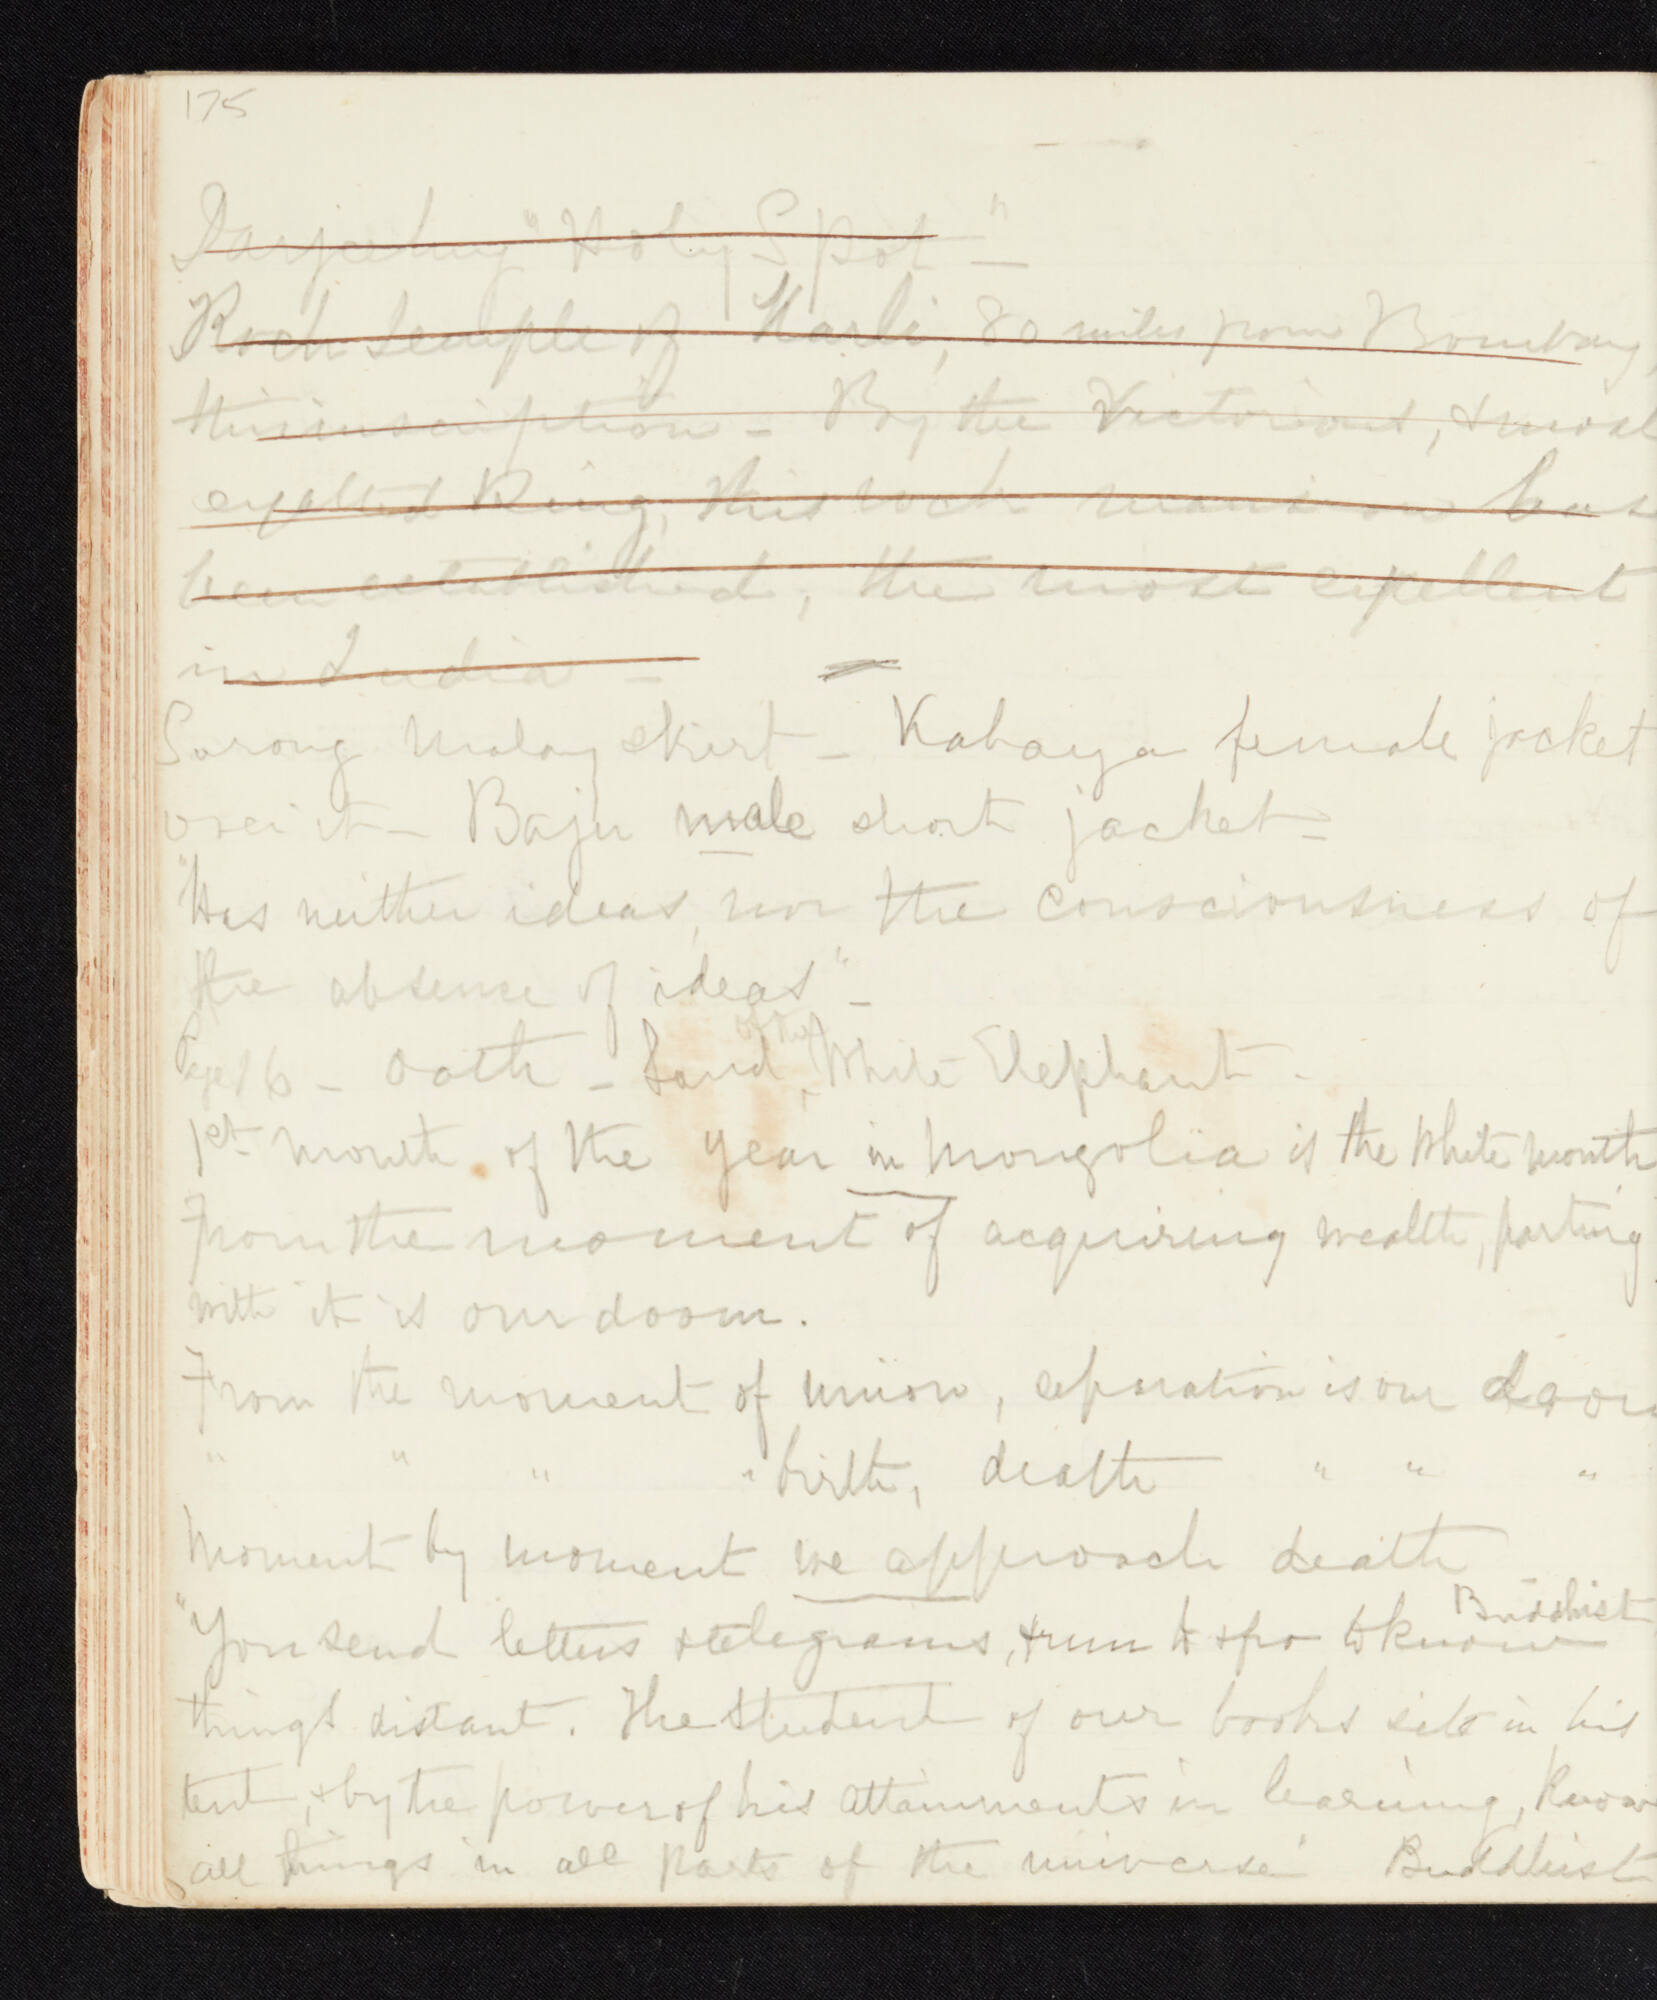 175
Darjeeling "Holy Spot" —
Rock temple of Karli, 80 miles from Bombay,
this inscription - By the Victorious, & most
exalted King, this rock mansion has
been established, the most excellent
in India —
Sarong Malay skirt - Kabaya female jacket
over it - Baju male short jacket -
"Has neither ideas, nor the consciousness of
the absence of ideas" -
Page 16 - oath - Land of the White Elephant -
1st month of the year in Mongolia is the White month
From the moment of acquiring wealth, parting
with it is our doom.
From the moment of union, separation is our doom
" " " " birth, death " " "
Moment by moment we approach death
Buddhist
"You send letters & telegrams, & run to & fro to know
things distant. The student of our books sits in his
tent, & by the power of his attainments in learning, knows
all things in all parts of the universe" Buddhist